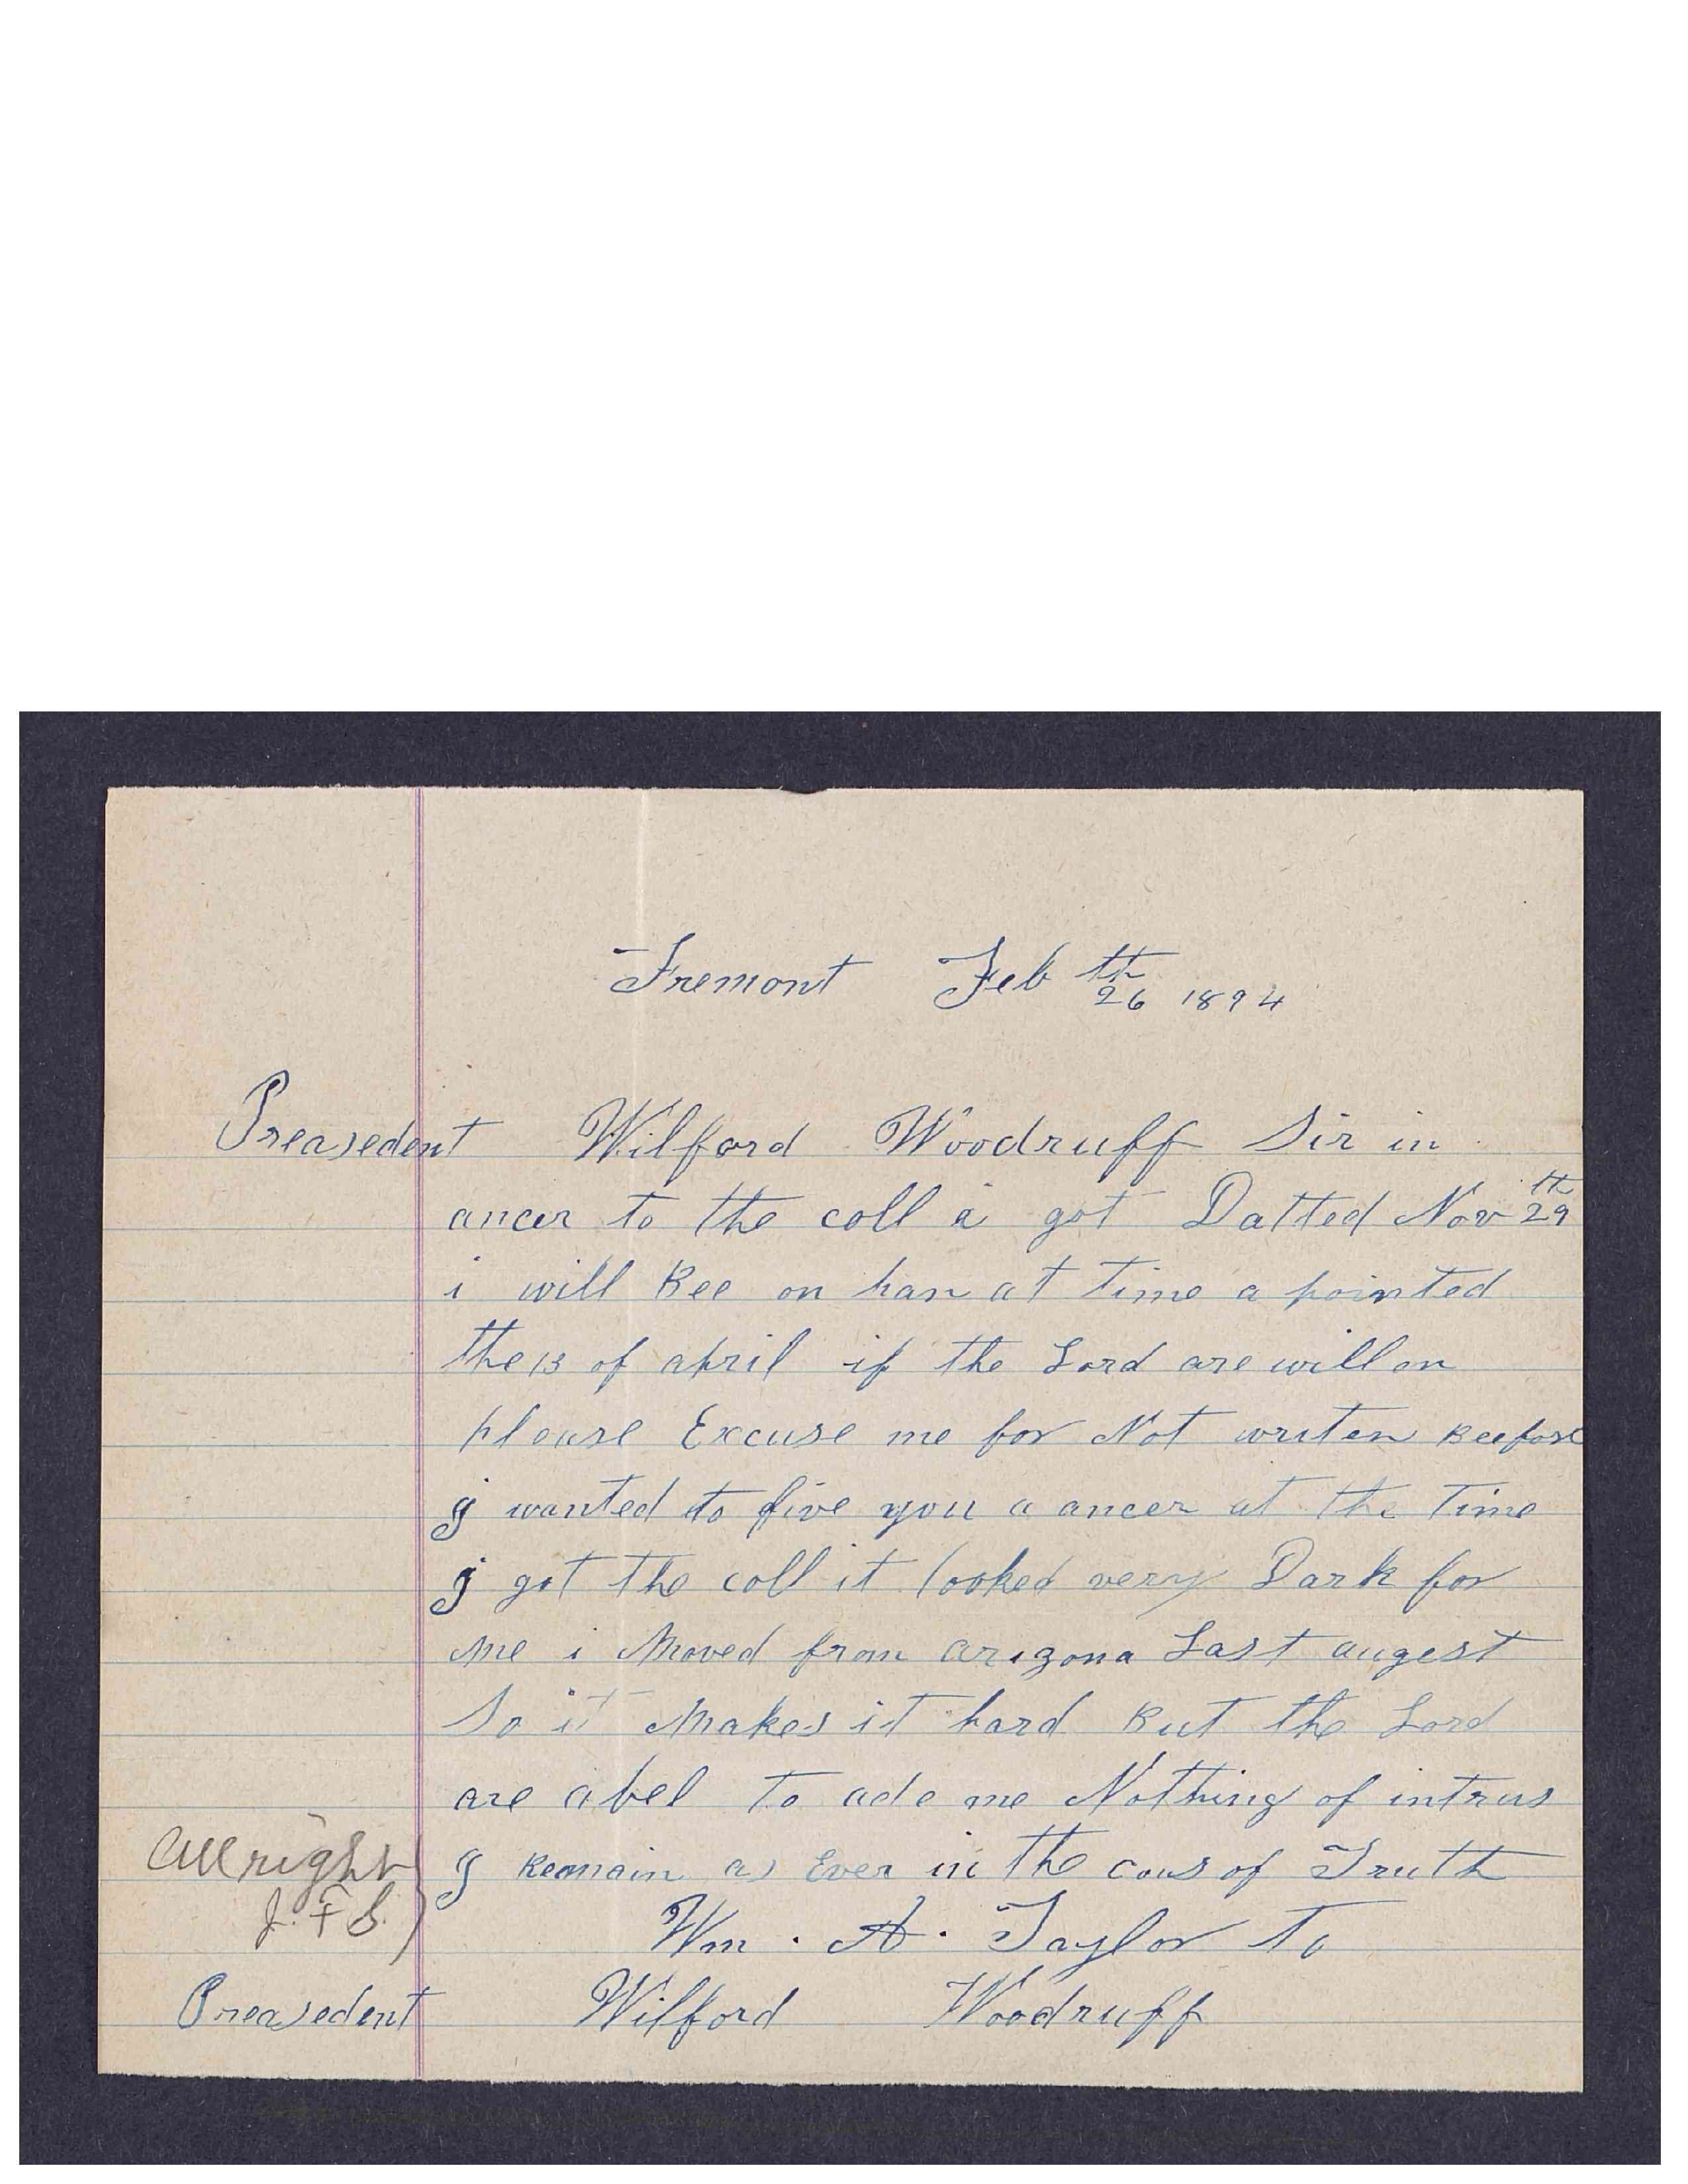 Fremont Feb 26th 1894
Preasedent Wilford Woodruff Sir in
ancer to the coll i got Datted Nov 29th
i will Bee on han at time a pointed
the 13 of april if the Lord are will on
please Excuse me for Not writen Beefore
I wanted to give you a ancer at the Time
I got the coll it looked very Dark for
me i Moved from arizona Last augest
So it Makes it hard But the Lord
are abel To ade me Nothing of intrus
I Remain as Ever in the caus of Truth
Wm. A. Taylor To
Preasedent Wilford Woodruff
All right
J. F. S.